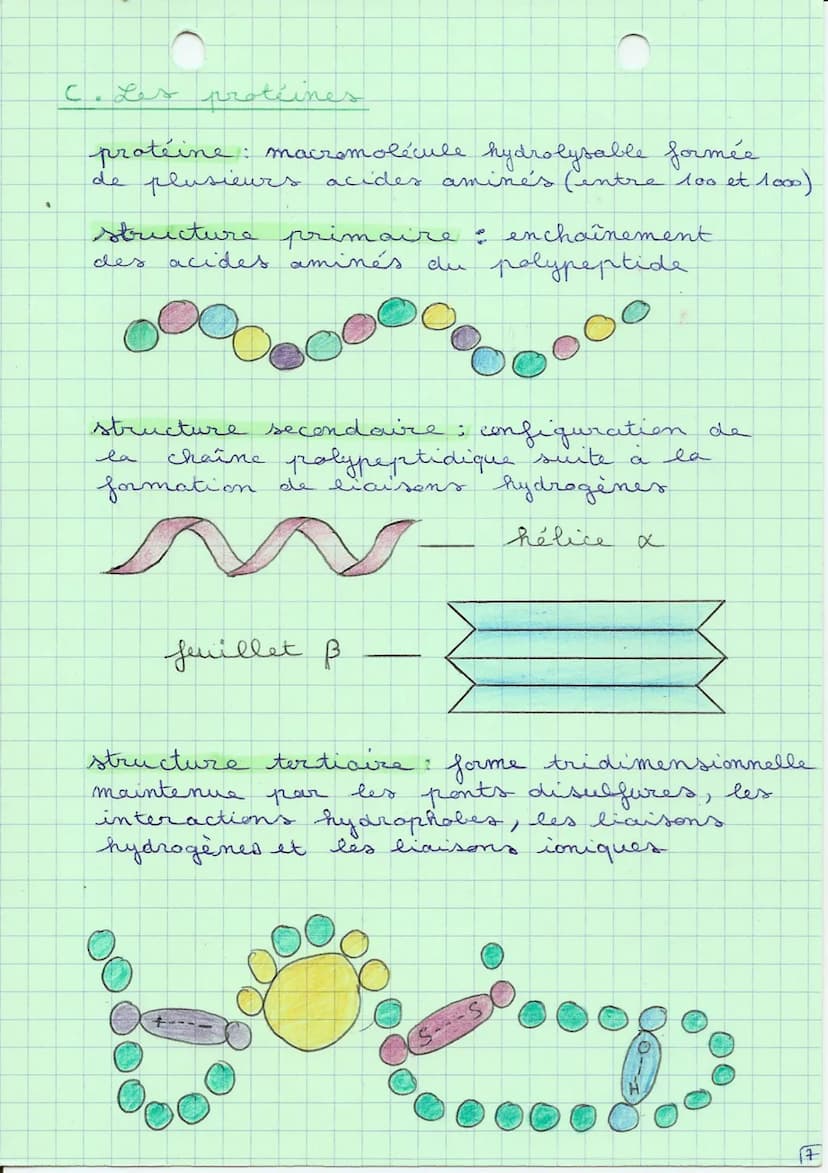 C. Les protéines
protéine : macromolécule hydrolysable formée
de plusieurs acides aminés (entre 100 et 1000)
structure primaire : enchaînement
des acides aminés du polypeptide
structure secondaire : configuration de
la chaîne polypeptidique suite à la
formation de liaisons hydrogènes
hélice α
feuillet β
structure tertiaire : forme tridimensionnelle
maintenue par les ponts disulfures, les
interactions hydrophobes, les liaisons
hydrogènes et les liaisons ioniques
+ ---- −
S ---- S
O -- H
7